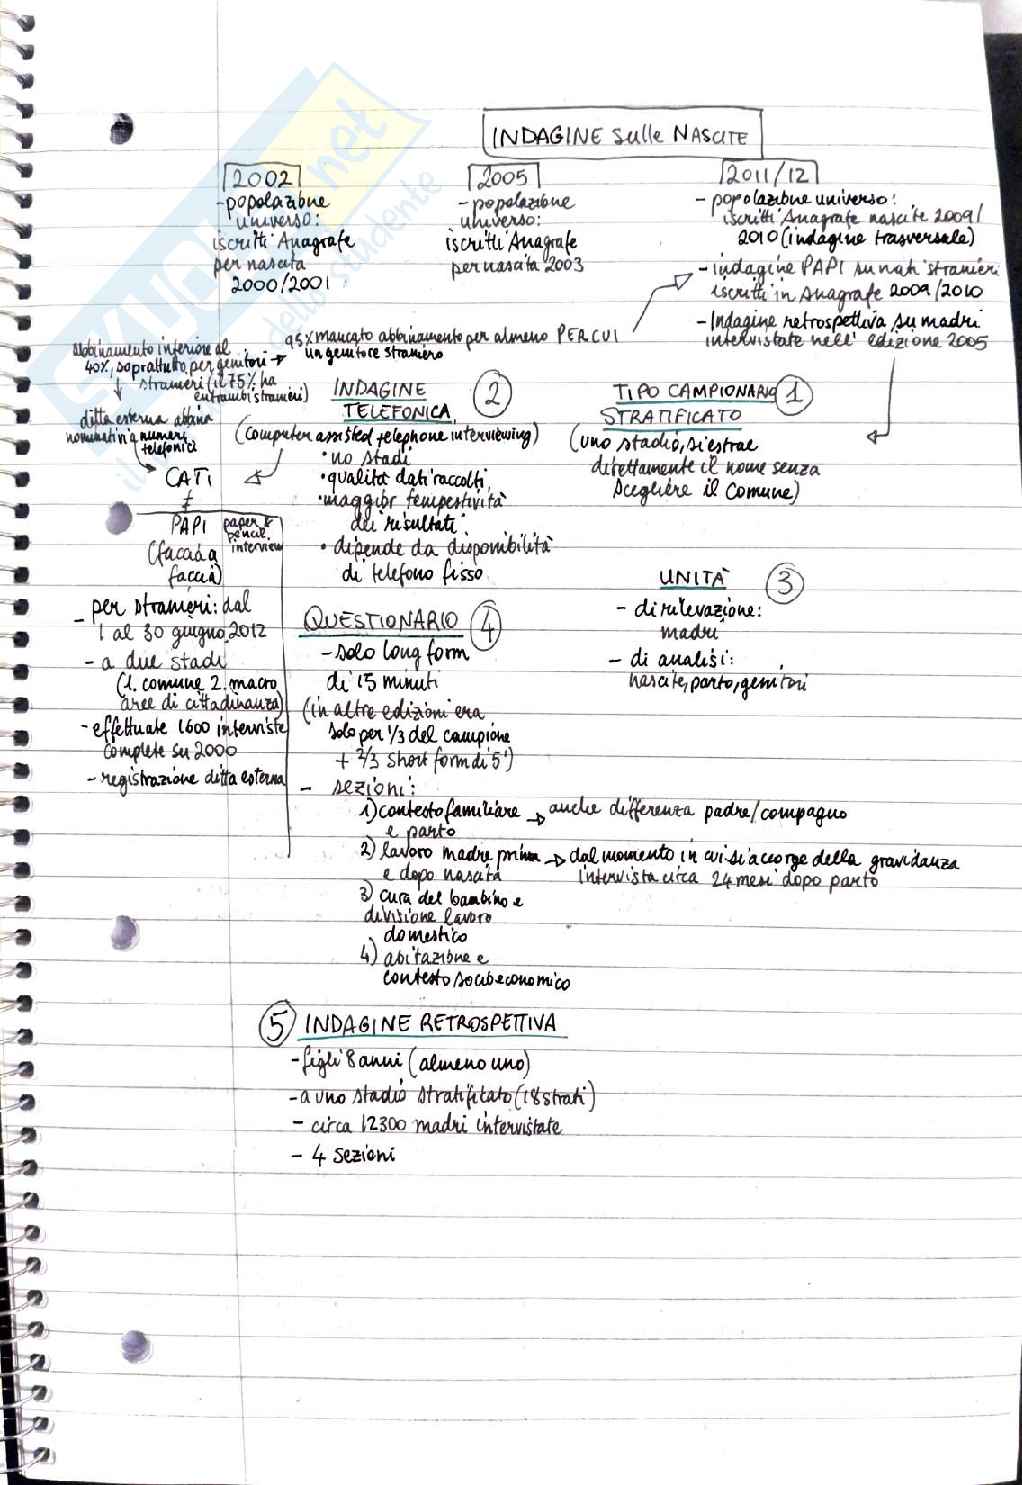 INDAGINE sulle NASCITE
2002
- popolazione
universo:
iscritti Anagrafe
per nascita
2000/2001
2005
- popolazione
universo:
iscritti Anagrafe
per nascita 2003
2011/12
- popolazione universo:
iscritti Anagrafe nascite 2009/
2010 (indagine trasversale)
- indagine PAPI su nati stranieri
iscritti in Anagrafe 2009/2010
- Indagine retrospettiva su madri
intervistate nell' edizione 2005
95% mancato abbinamento per almeno PER CUI
un genitore straniero
abbinamento inferiore al
40%, soprattutto per genitori →
stranieri (il 75% ha
entrambi stranieri)
ditta esterna abbina
nominativi a numeri
telefonici
CATI
≠
PAPI paper &
pencil
interview
(faccia a
faccia)
- per stranieri: dal
1 al 30 giugno 2012
- a due stadi
(1. comune 2. macro
aree di cittadinanza)
- effettuate 1600 interviste
complete su 2000
- registrazione ditta esterna
INDAGINE 2
TELEFONICA
(computer assisted telephone interviewing)
• no stadi
• qualità dati raccolti
• maggior tempestività
dei risultati
• dipende da disponibilità
di telefono fisso
TIPO CAMPIONARIO 1
STRATIFICATO
(uno stadio, si estrae
direttamente il nome senza
scegliere il Comune)
UNITÀ 3
- di rilevazione:
madri
- di analisi:
nascite, parto, genitori
QUESTIONARIO 4
- solo long form
di 15 minuti
(in altre edizioni era
solo per 1/3 del campione
+ 2/3 short form di 5')
- sezioni:
1) contesto familiare → anche differenza padre/compagno
e parto
2) lavoro madre prima → dal momento in cui si accorge della gravidanza
e dopo nascita intervista circa 24 mesi dopo parto
3) cura del bambino e
divisione lavoro
domestico
4) abitazione e
contesto socioeconomico
5 INDAGINE RETROSPETTIVA
- figli 8 anni (almeno uno)
- a uno stadio stratificato (18 strati)
- circa 12300 madri intervistate
- 4 sezioni
skuola.net
dello studente